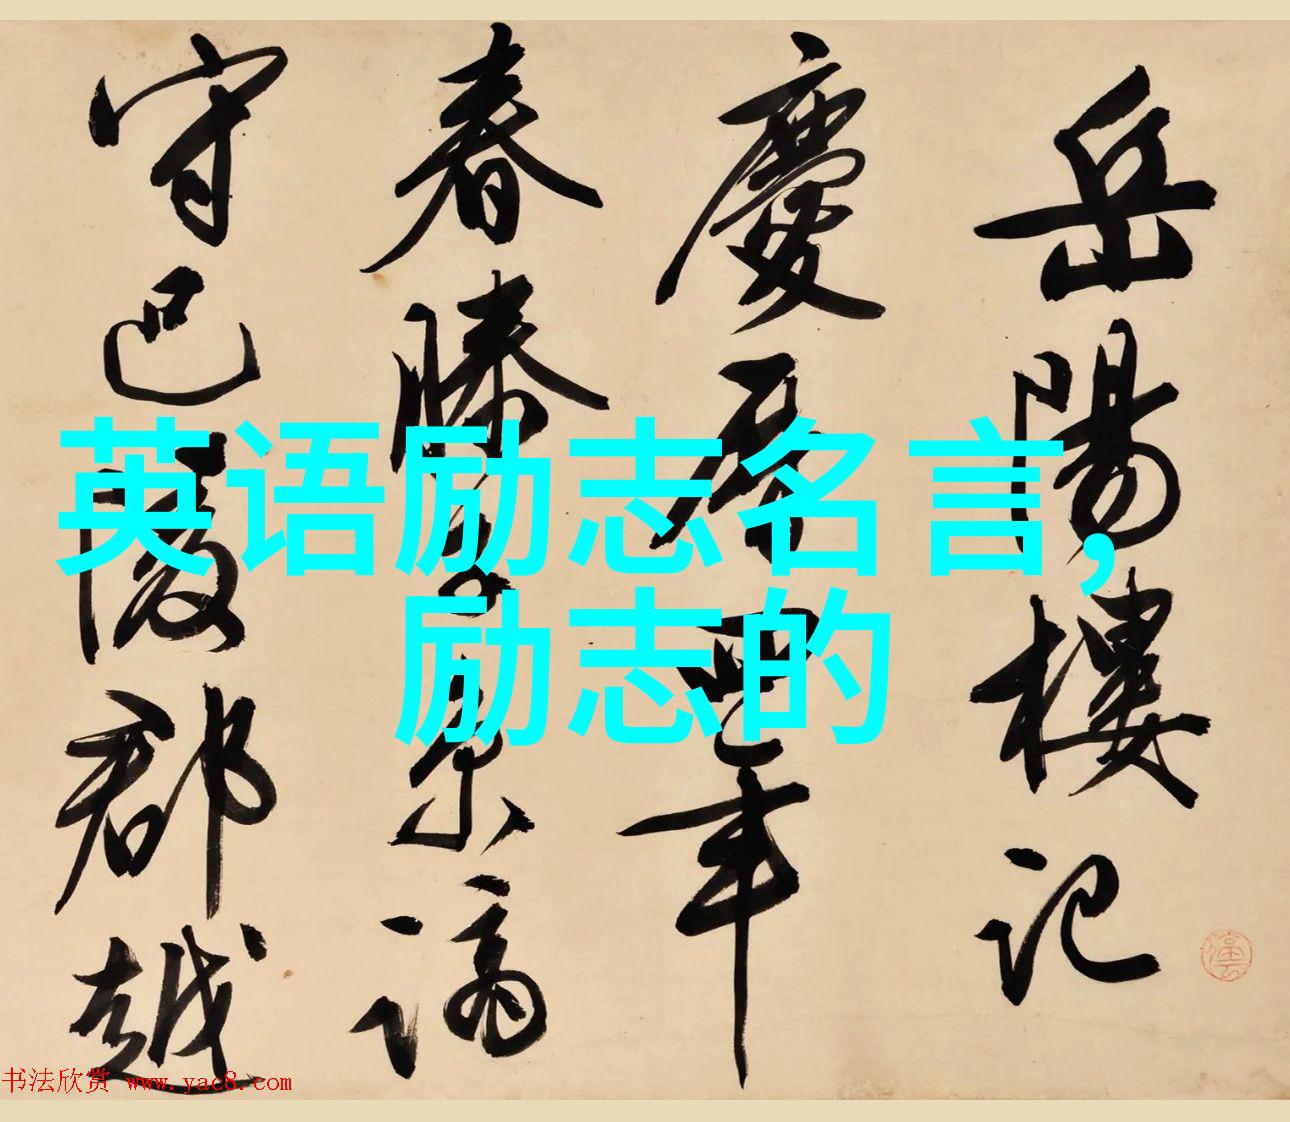 岳陽樓記
慶曆四年
春滕子京謫
守巴陵郡越
英语励志名言,
励志的
书法欣赏 www.yac8.com